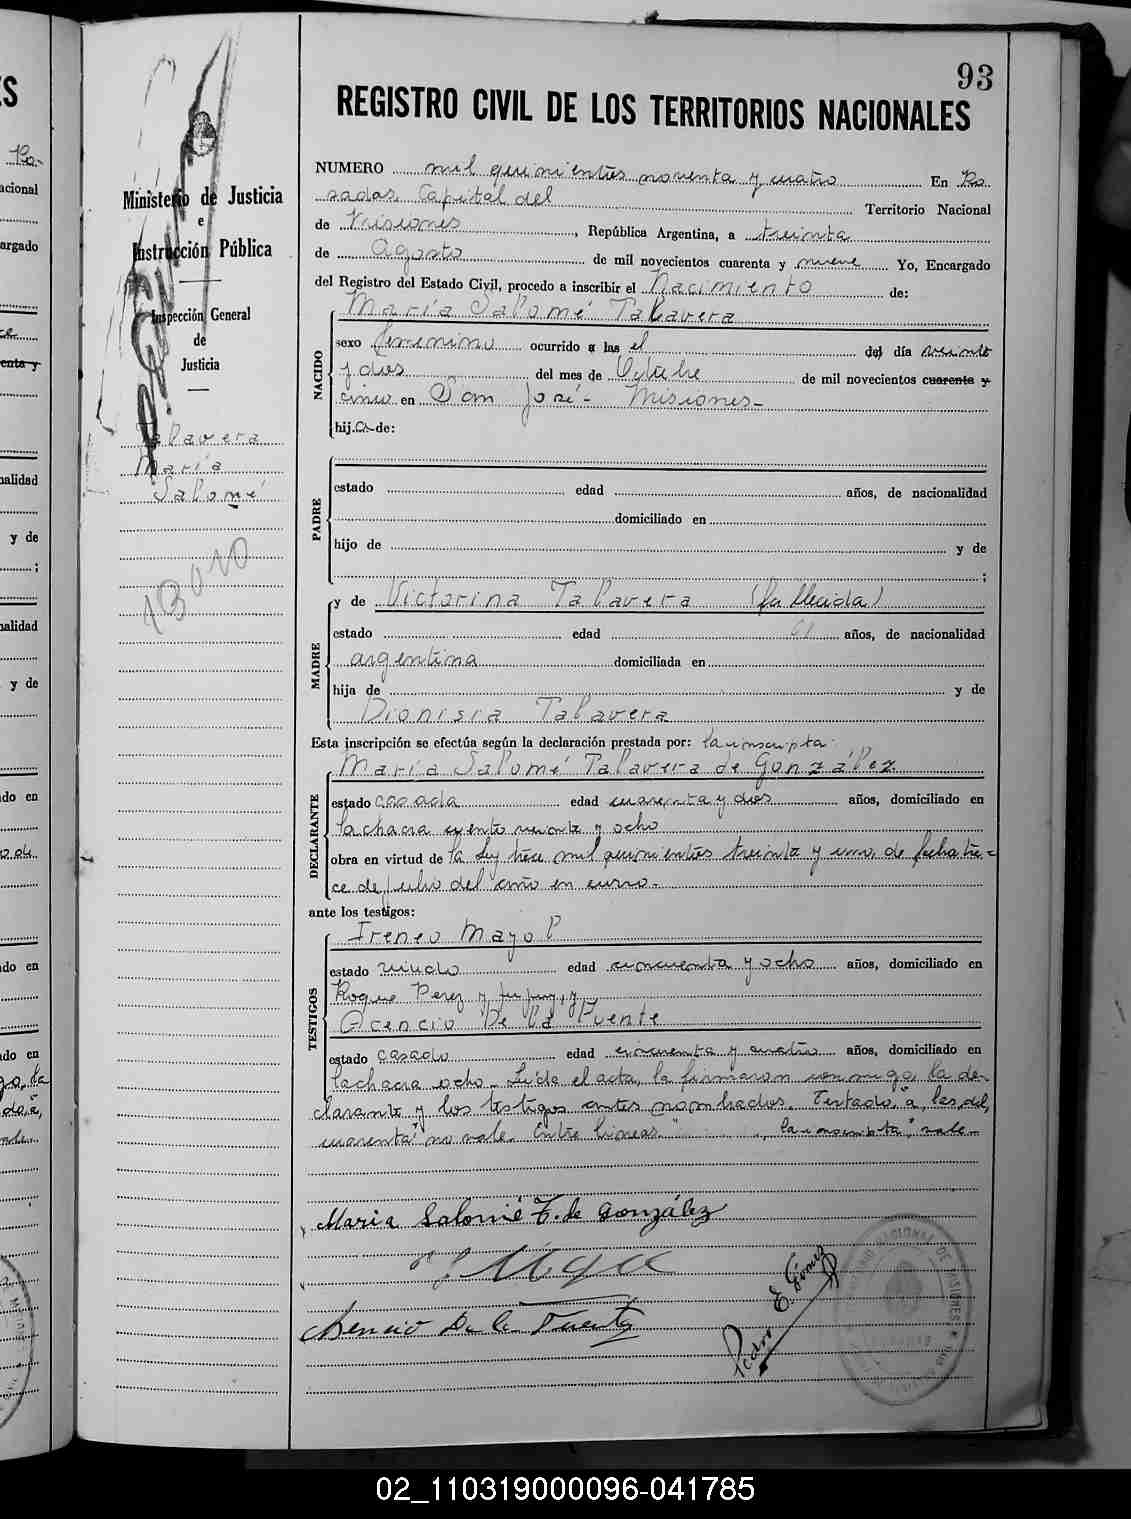 93
REGISTRO CIVIL DE LOS TERRITORIOS NACIONALES
Ministerio de Justicia
e
Instrucción Pública
Inspección General
de
Justicia
Talavera
María
Salomé
13010
NUMERO mil quinientos noventa y cuatro En Po
sadas, Capital del Territorio Nacional
de Misiones, República Argentina, a treinta
de Agosto de mil novecientos cuarenta y nueve Yo, Encargado
del Registro del Estado Civil, procedo a inscribir el Nacimiento de:
NACIDO
María Salomé Talavera
sexo femenino ocurrido a las el del día veinte
y dos del mes de Octubre de mil novecientos cuarenta y
cinco en San José - Misiones -
hij.a de:
PADRE
estado edad años, de nacionalidad
domiciliado en
hijo de y de
;
MADRE
y de Victorina Talavera (fallecida)
estado edad años, de nacionalidad
argentina domiciliada en
hija de y de
Dionisia Talavera
Esta inscripción se efectúa según la declaración prestada por: la inscripta
DECLARANTE
María Salomé Talavera de González
estado casada edad cuarenta y dos años, domiciliado en
la chacra ciento veinte y ocho
obra en virtud de la Ley trece mil quinientos treinta y uno, de fecha tre-
ce de julio del año en curso.-
ante los testigos:
TESTIGOS
Ireneo Mayol
estado viudo edad cincuenta y ocho años, domiciliado en
Roque Perez y Jujuy, y
Acencio De la Fuente
estado casado edad cincuenta y cuatro años, domiciliado en
la chacra ocho. Leída el acta, la firmaron conmigo, la de-
clarante y los testigos antes nombrados. Testado "a, las, del,
cuarenta" no vale. Entre lineas " la inscripta", vale -
Maria Salomé T. de González
Acencio De la Fuente
Pedro E. Gómez
02_110319000096-041785